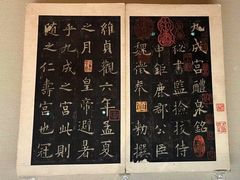 九成宮醴泉銘
秘書監撿挍侍
中鉅鹿郡公臣
魏徵奉 勑撰
維貞觀六年孟夏
之月皇帝避暑
乎九成之宮此則
隨之仁壽宮也冠